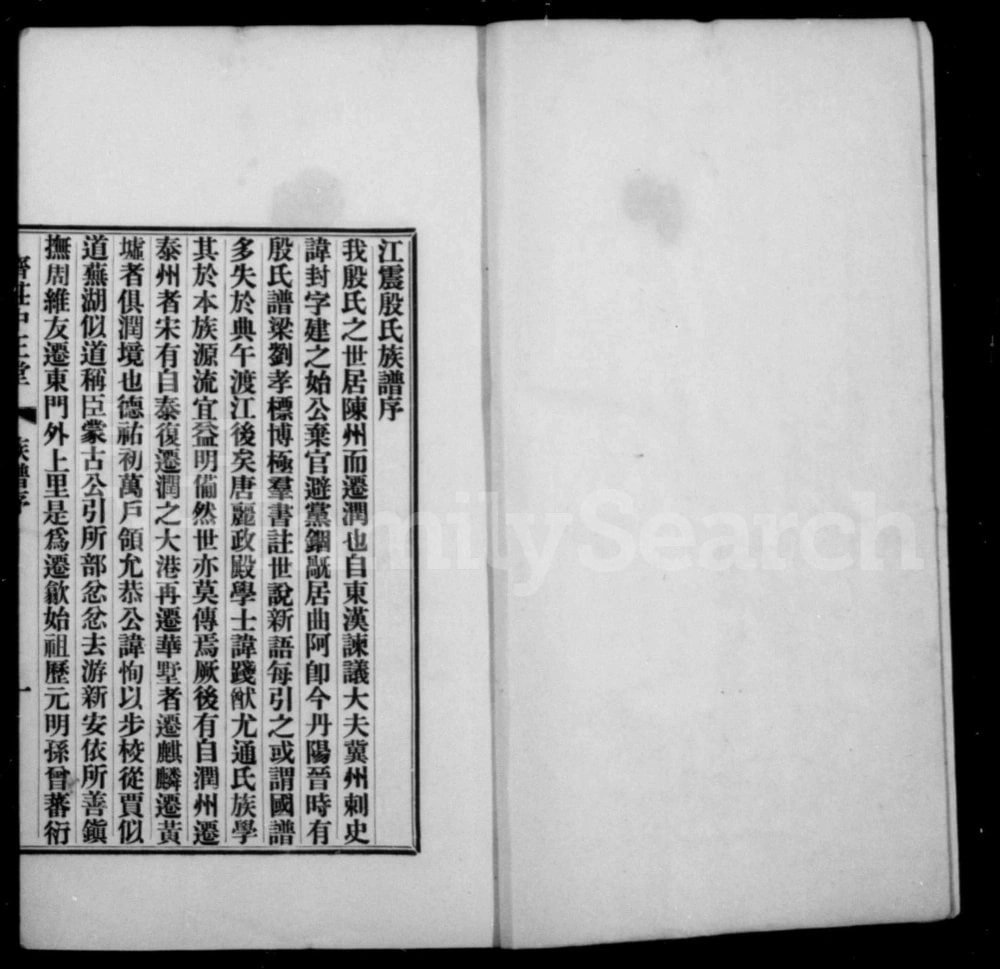 江震殷氏族譜序
我殷氏之世居陳州而遷潤也自東漢諫議大夫冀州刺史
諱封字建之始公棄官避黨錮厰居曲阿卽今丹陽晉時有
殷氏譜梁劉孝標博極羣書註世說新語每引之或謂國譜
多失於典午渡江後矣唐麗政殿學士諱踐猷尤通氏族學
其於本族源流宜益明備然世亦莫傳焉厥後有自潤州遷
泰州者宋有自泰復遷潤之大港再遷華墅者遷麒麟遷黃
墟者俱潤境也德祐初萬戶領允恭公諱恂以步校從賈似
道蕪湖似道稱臣蒙古公引所部忿忿去游新安依所善鎭
撫周維友遷東門外上里是爲遷歙始祖歷元明孫曾蕃衍
中正堂
族譜序
一
FamilySearch